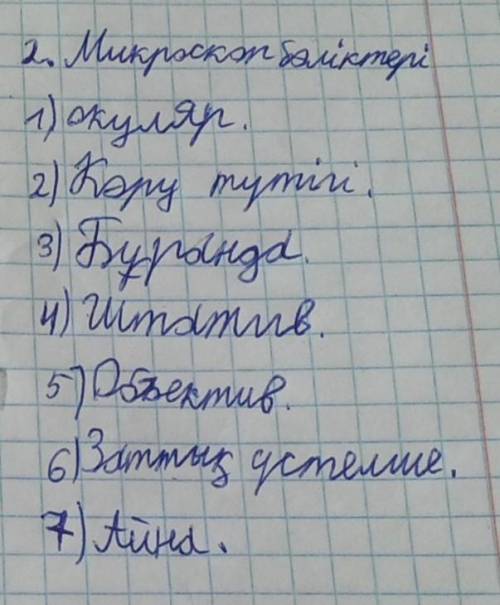 2. Микроскоп бөліктері
1) окуляр.
2) Көру түтігі.
3) Бұранда.
4) Штатив.
5) Объектив.
6) Заттық үстелше.
7) Айна.